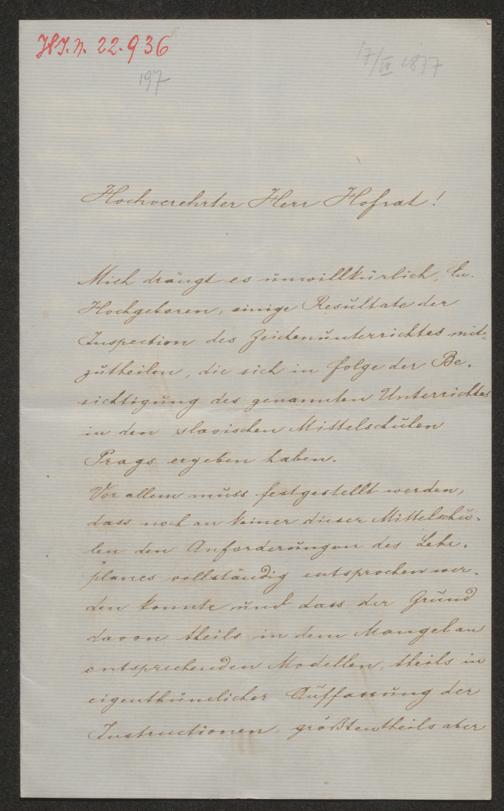 H.I.N. 22.936
197
17/II 1877
Hochverehrter Herr Hofrat!
Mich drängt es unwillkürlich, Eu.
Hochgeboren, einige Resultate der
Inspection des Zeichenunterrichtes mit-
zutheilen, die sich in folge der Be-
sichtigung des genannten Unterrichtes
in den slavischen Mittelschulen
Prags ergeben haben.
Vor allem muss festgestellt werden,
dass noch an keiner dieser Mittelschu-
len den Anforderungen des Lehr-
planes vollständig entsprochen wer-
den konnte und dass der Grund
davon theils in dem Mangel an
entsprechenden Modellen, theils in
eigenthümlicher Auffassung der
Instructionen, größtentheils aber